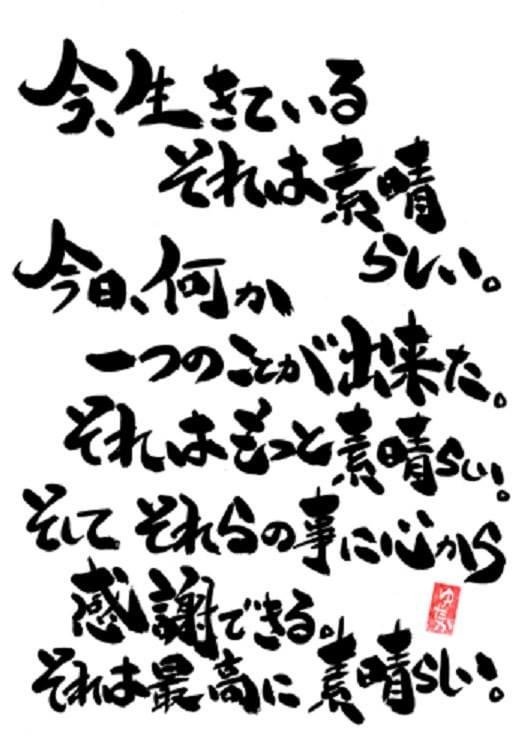 今、生きている
それは素晴
らしい。
今日、何か
一つのことが出来た。
それはもっと素晴らしい。
そして それらの事に心から
感謝できる。
それは最高に 素晴らしい。
ゆたか